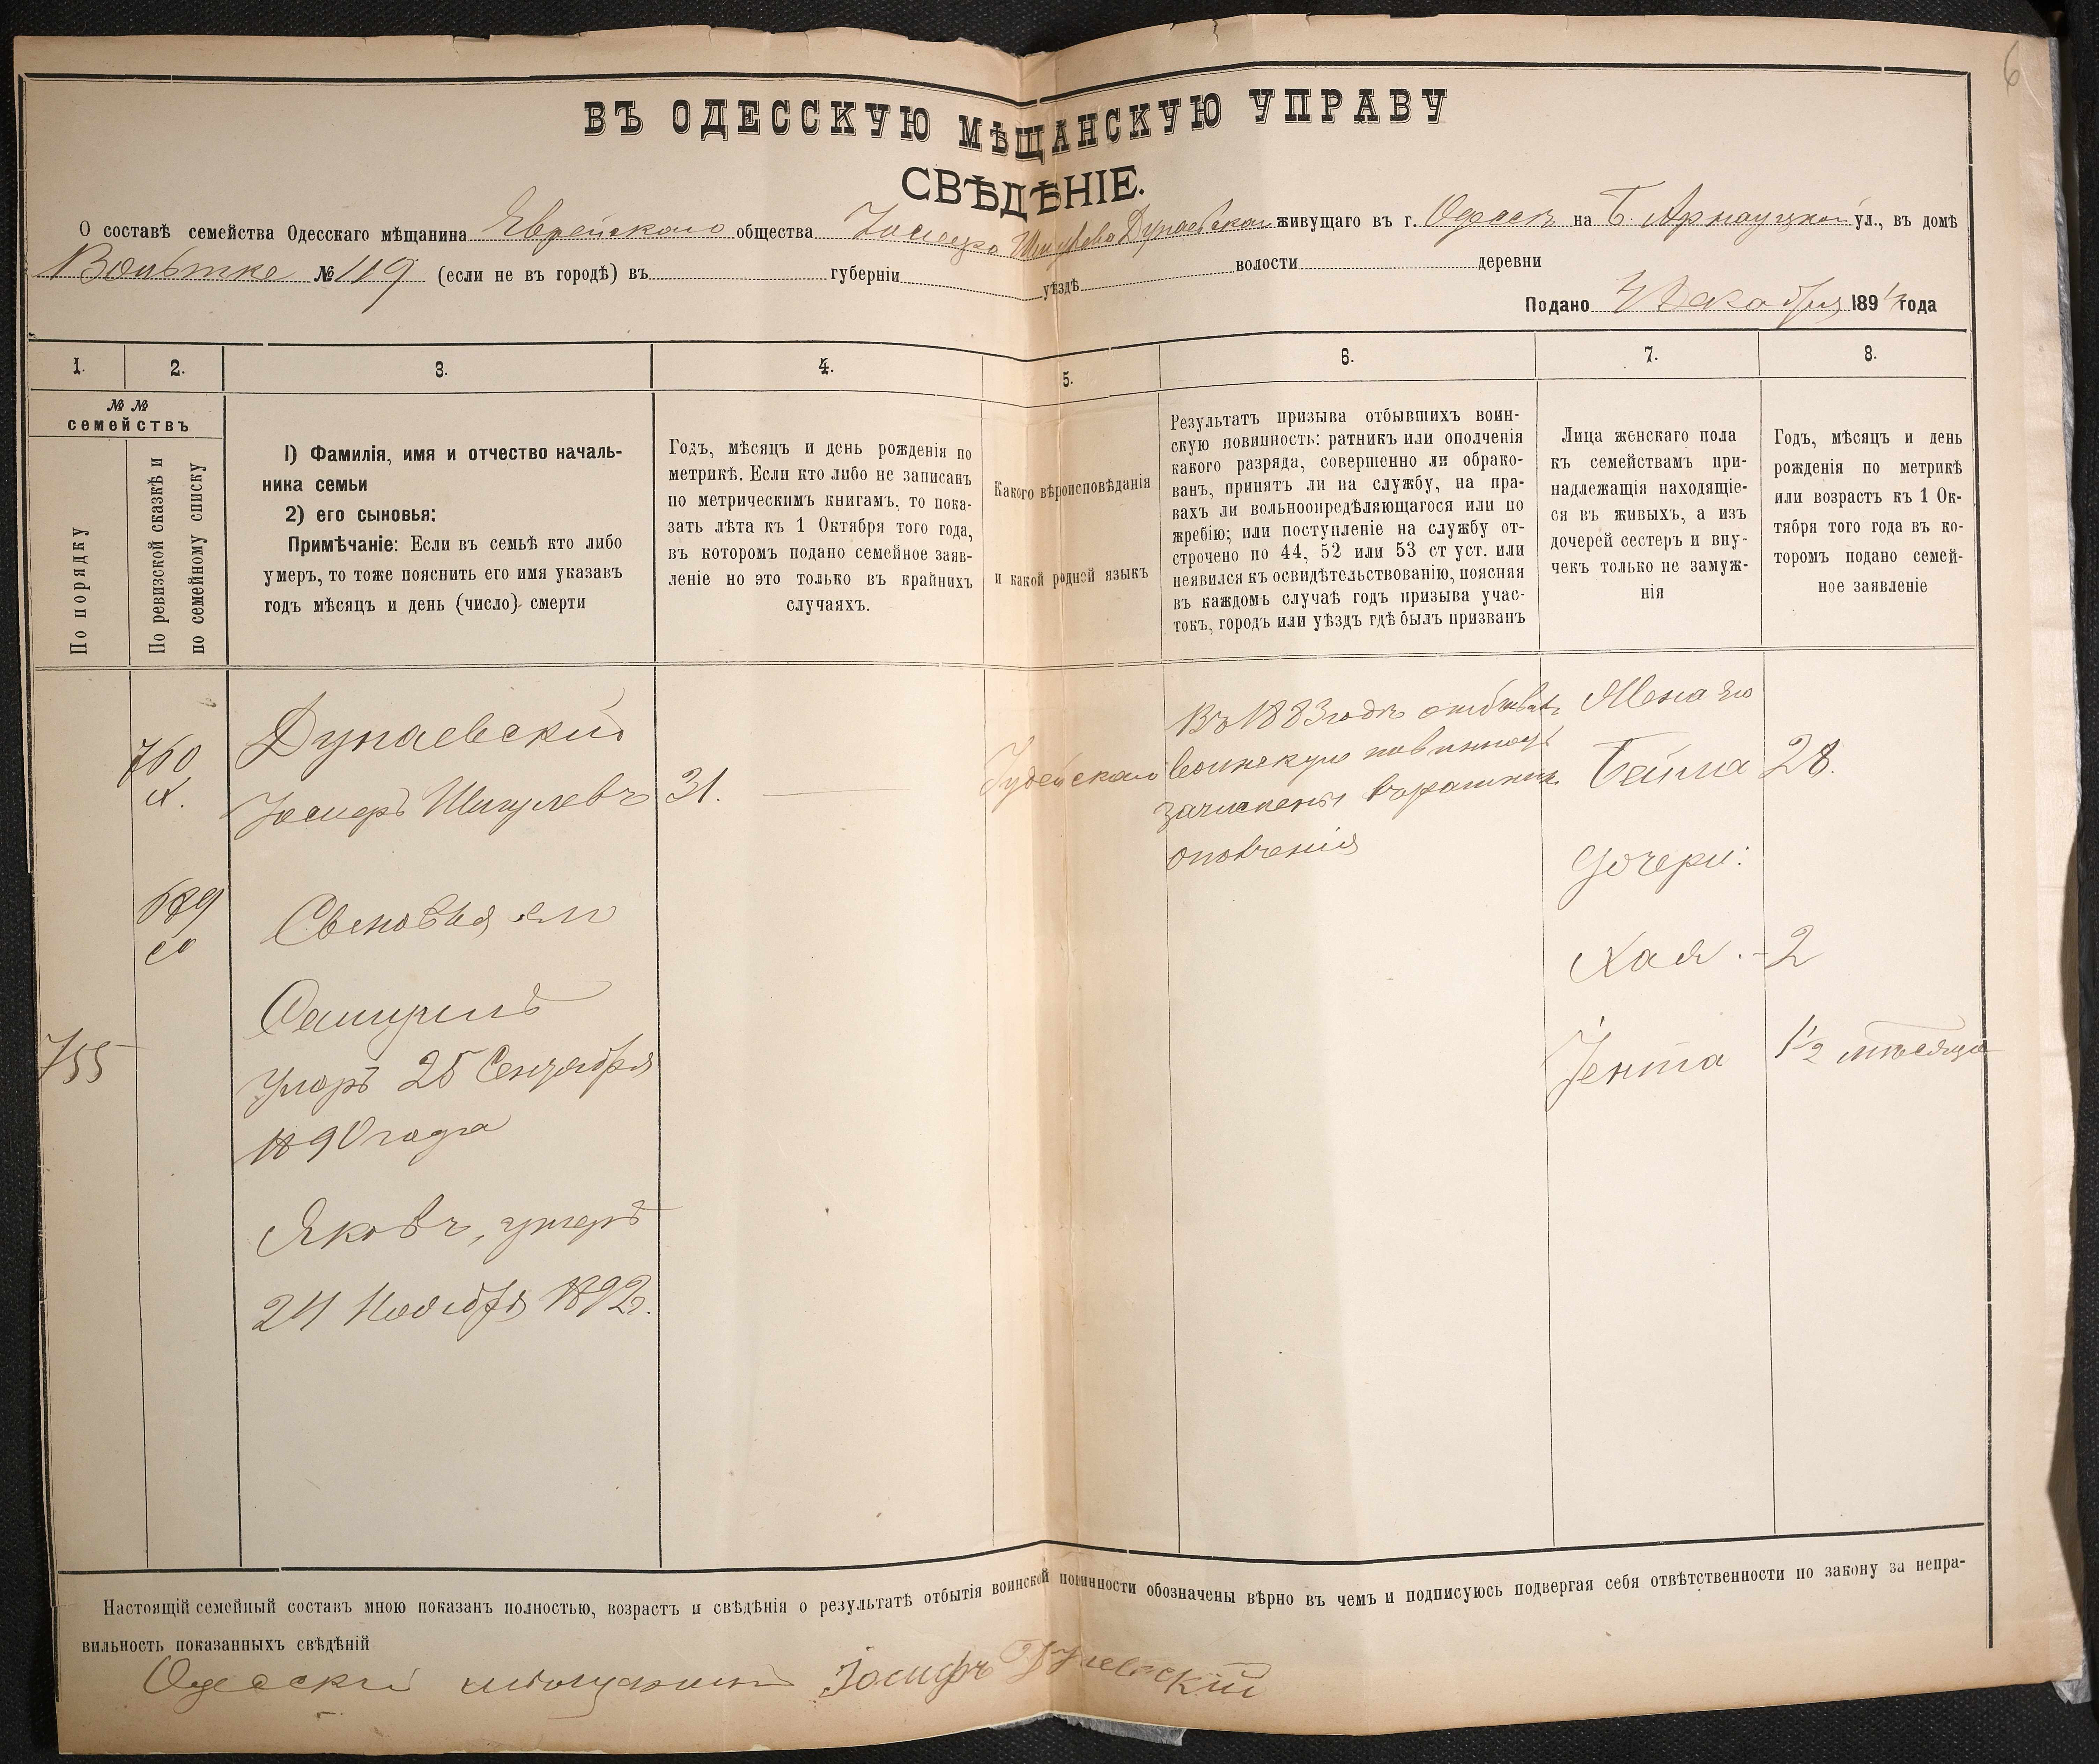 6
ВЪ ОДЕССКУЮ МѢЩАНСКУЮ УПРАВУ
СВѢДѢНІЕ.
О составѣ семейства Одесскаго мѣщанина Еврейскаго общества Дунаевскаго живущаго въ г. Одессѣ на Б. Арнауцкой ул., въ домѣ
№ 119 (если не въ городѣ) въ губерніи уѣздѣ волости деревни
Подано 4 Декабря 1894 года
1. 2. 3. 4. 5. 6. 7. 8.
№ №
семействъ
По порядку
По ревизской сказкѣ и
по семейному списку
1) Фамилія, имя и отчество началь-
ника семьи
2) его сыновья:
Примѣчаніе: Если въ семьѣ кто либо
умеръ, то тоже пояснить его имя указавъ
годъ мѣсяцъ и день (число) смерти
Годъ, мѣсяцъ и день рожденія по
метрикѣ. Если кто либо не записанъ
по метрическимъ книгамъ, то пока-
зать лѣта къ 1 Октября того года,
въ которомъ подано семейное заяв-
леніе но это только въ крайнихъ
случаяхъ.
Какого вѣроисповѣданія
и какой родной языкъ
Результатъ призыва отбывшихъ воин-
скую повинность: ратникъ или ополченія
какого разряда, совершенно ли обрако-
ванъ, принятъ ли на службу, на пра-
вахъ ли вольноопредѣляющагося или по
жребію; или поступленіе на службу от-
строчено по 44, 52 или 53 ст уст. или
неявился къ освидѣтельствованію, поясняя
въ каждомъ случаѣ годъ призыва учас-
токъ, городъ или уѣздъ гдѣ былъ призванъ
Лица женскаго пола
къ семействамъ при-
надлежащія находящіе-
ся въ живыхъ, а изъ
дочерей сестеръ и вну-
чекъ только не замуж-
нія
Годъ, мѣсяцъ и день
рожденія по метрикѣ
или возрастъ къ 1 Ок-
тября того года въ ко-
торомъ подано семей-
ное заявленіе
760
Дунаевскій
Іосифъ Шмулевъ
31.
Іудейскаго
Въ 1883 годѣ отбывалъ
воинскую повинность
зачисленъ въ ратники
ополченія
Жена его
Бейла 28.
Дочери:
Хая. - 2
Іента 1½ мѣсяца
689
Сыновья его
Самуилъ
умеръ 25 Сентября
1890 года
755
Яковъ, умеръ
24 Ноября 1892г.
Настоящій семейный составъ мною показанъ полностью, возрастъ и свѣдѣнія о результатѣ отбытія воинской повинности обозначены вѣрно въ чемъ и подписуюсь подвергая себя отвѣтственности по закону за непра-
вильность показанныхъ свѣдѣній
Одесскій мѣщанинъ Іосифъ Дунаевскій